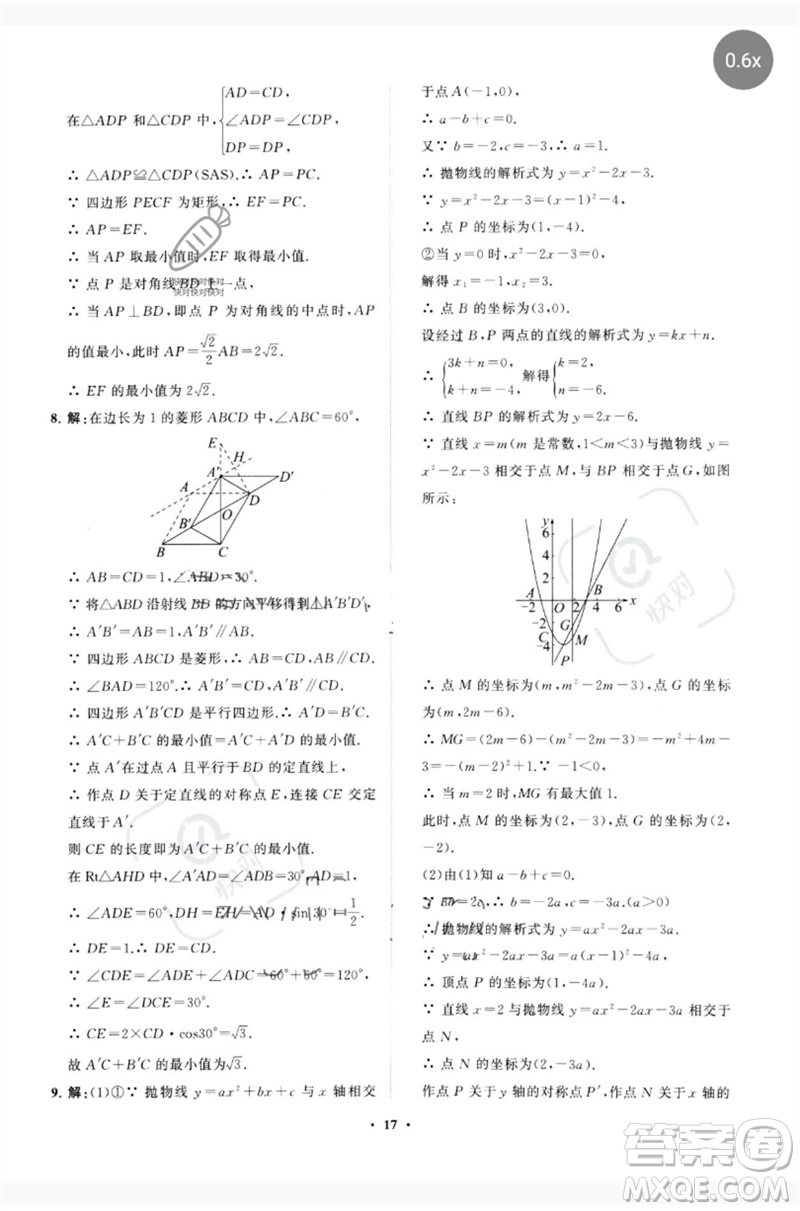 0.6x
在△ADP 和△CDP 中,{AD=CD,
∠ADP=∠CDP,
DP=DP,
∴ △ADP≌△CDP(SAS). ∴ AP=PC.
∵ 四边形 PECF 为矩形,∴ EF=PC.
∴ AP=EF.
∴ 当 AP 取最小值时,EF 取得最小值.
∵ 点 P 是对角线BD 上一点,
∴ 当 AP⊥BD,即点 P 为对角线的中点时,AP
的值最小,此时 AP=√2/2 AB=2√2.
∴ EF 的最小值为 2√2.
8. 解:在边长为 1 的菱形 ABCD 中,∠ABC=60°,
E
H
A′
D′
A
D
O
B′
B
C
∴ AB=CD=1,∠ABD=30°.
∵ 将△ABD 沿射线 BD 的方向平移得到△A′B′D′,
∴ A′B′=AB=1,A′B′∥AB.
∵ 四边形 ABCD 是菱形,∴ AB∥CD.
∴ ∠BAD=120°. ∴ A′B′=CD,A′B′∥CD.
∴ 四边形 A′B′CD 是平行四边形. ∴ A′D=B′C.
∴ A′C+B′C 的最小值=A′C+A′D 的最小值.
∵ 点 A′在过点 A 且平行于 BD 的定直线上,
∴ 作点 D 关于定直线的对称点 E,连接 CE 交定
直线于 A′.
则 CE 的长度即为 A′C+B′C 的最小值.
在 Rt△AHD 中,∵ ∠A′AD=∠ADB=30°,AD=1,
∴ ∠ADE=60°,DH=EH=AD·sin 30°=1/2.
∴ DE=1. ∴ DE=CD.
∵ ∠CDE=∠ADE+∠ADC=60°+60°=120°,
∴ ∠E=∠DCE=30°.
∴ CE=2×CD·cos30°=√3.
故 A′C+B′C 的最小值为√3.
9. 解:(1)①∵ 抛物线 y=ax²+bx+c 与 x 轴相交
于点 A(-1,0),
∴ a-b+c=0.
又∵ b=-2,c=-3,∴ a=1.
∴ 抛物线的解析式为 y=x²-2x-3.
∵ y=x²-2x-3=(x-1)²-4,
∴ 点 P 的坐标为(1,-4).
②当 y=0 时,x²-2x-3=0,
解得 x₁=-1,x₂=3.
∴ 点 B 的坐标为(3,0).
设经过 B,P 两点的直线的解析式为 y=kx+n.
∴ {3k+n=0, k+n=-4, 解得{k=2, n=-6.
∴ 直线 BP 的解析式为 y=2x-6.
∵ 直线 x=m(m 是常数,1<m<3)与抛物线 y=
x²-2x-3 相交于点 M,与 BP 相交于点G,如图
所示:
y
6
4
2
A
B
-2
O
2
4
6
x
-2
G
C
-4
M
P
∴ 点 M 的坐标为(m,m²-2m-3),点 G 的坐标
为(m,2m-6).
∴ MG=(2m-6)-(m²-2m-3)=-m²+4m-
3=-(m-2)²+1.∵ -1<0,
∴ 当 m=2 时,MG 有最大值 1.
此时,点 M 的坐标为(2,-3),点 G 的坐标为(2,
-2).
(2)由(1)知 a-b+c=0.
又∵ b=-2a,∴ b=-2a,c=-3a.(a>0)
∴ 抛物线的解析式为 y=ax²-2ax-3a.
∵ y=ax²-2ax-3a=a(x-1)²-4a,
∴ 顶点 P 的坐标为(1,-4a).
∵ 直线 x=2 与抛物线 y=ax²-2ax-3a 交于
点 N,
∴ 点 N 的坐标为(2,-3a).
作点 P 关于 y 轴的对称点 P′,作点 N 关于 x 轴的
• 17 •
快对
快对
答案圈
MXQE.COM